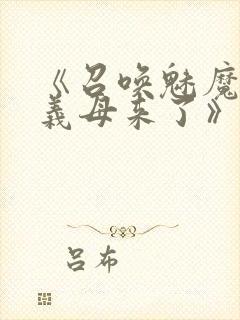 《召唤魅魔
義母来了》
吕布